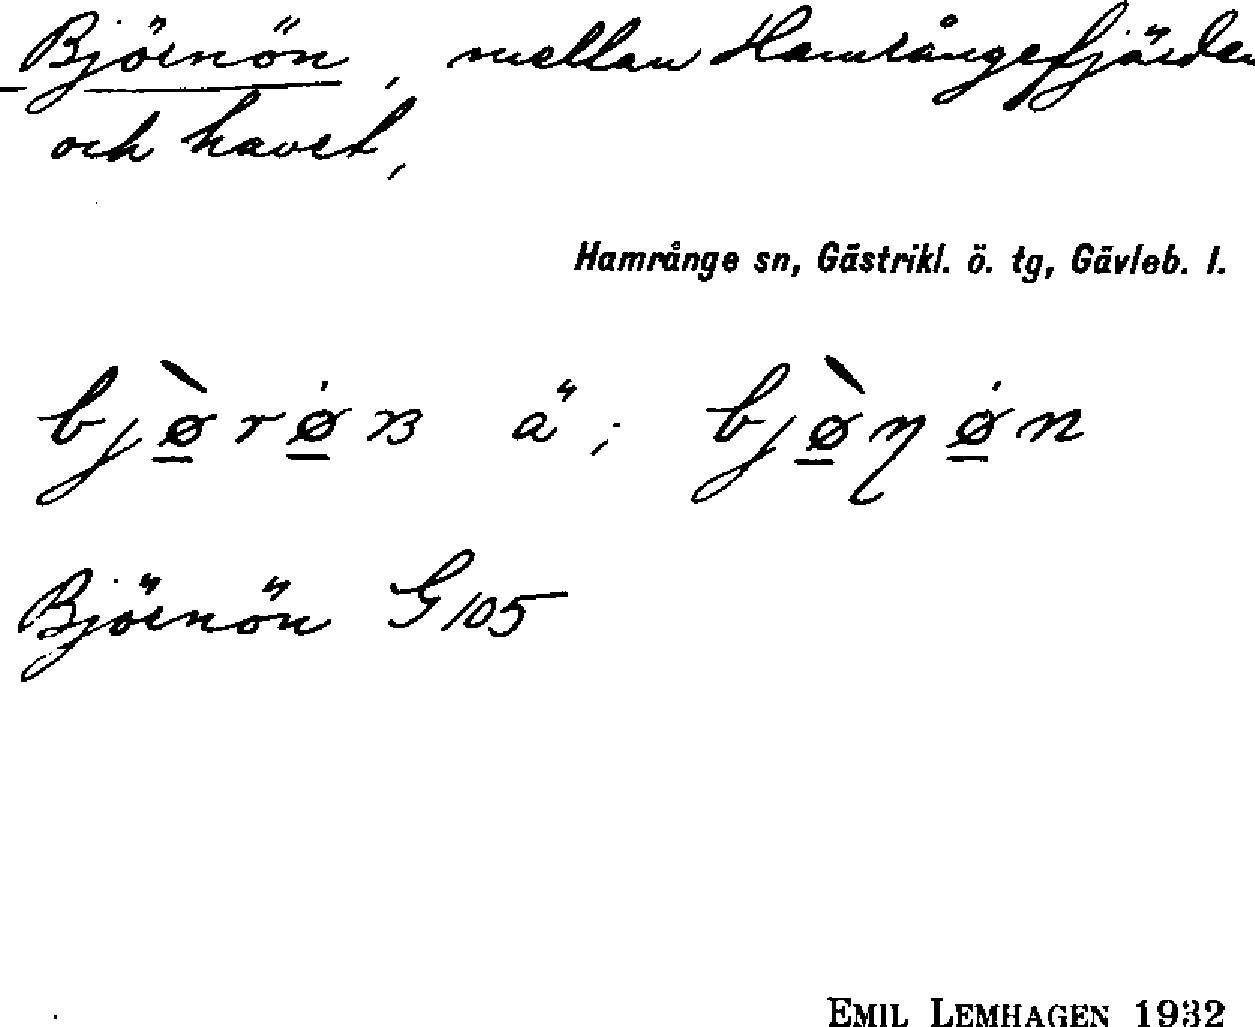 Björnön, mellan Hamrångefjärden
och havet,
Hamrånge sn, Gästrikl. ö. tg, Gävleb. l.
Björnön G 105
EMIL LEMHAGEN 1932